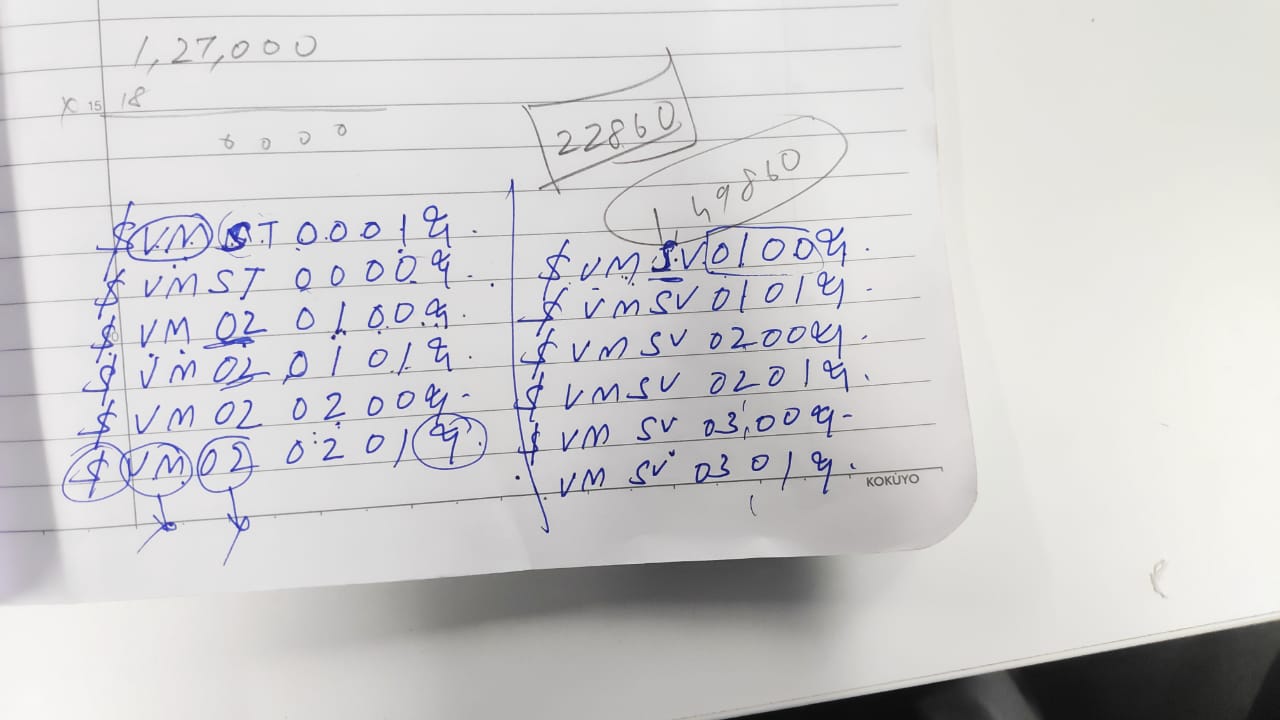 1,27,000
x 15 18
0 0 0 0
22860
1,49860
$ VM ST 0001 %.
$ VMST 0000 %.
$ VM 02 0100 %.
$ VM 02 0101 %.
$ VM 02 0200 %.
$ VM 02 0201 %.
$ VM SV 0100 %.
$ VMSV 0101 %.
$ VM SV 0200 %.
$ VMSV 0201 %.
$ VM SV 0300 %.
VM SV 0301 %.
KOKUYO